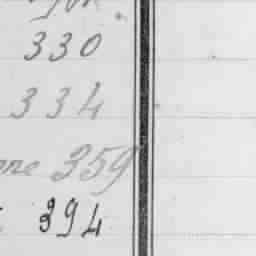 330
334
359
394